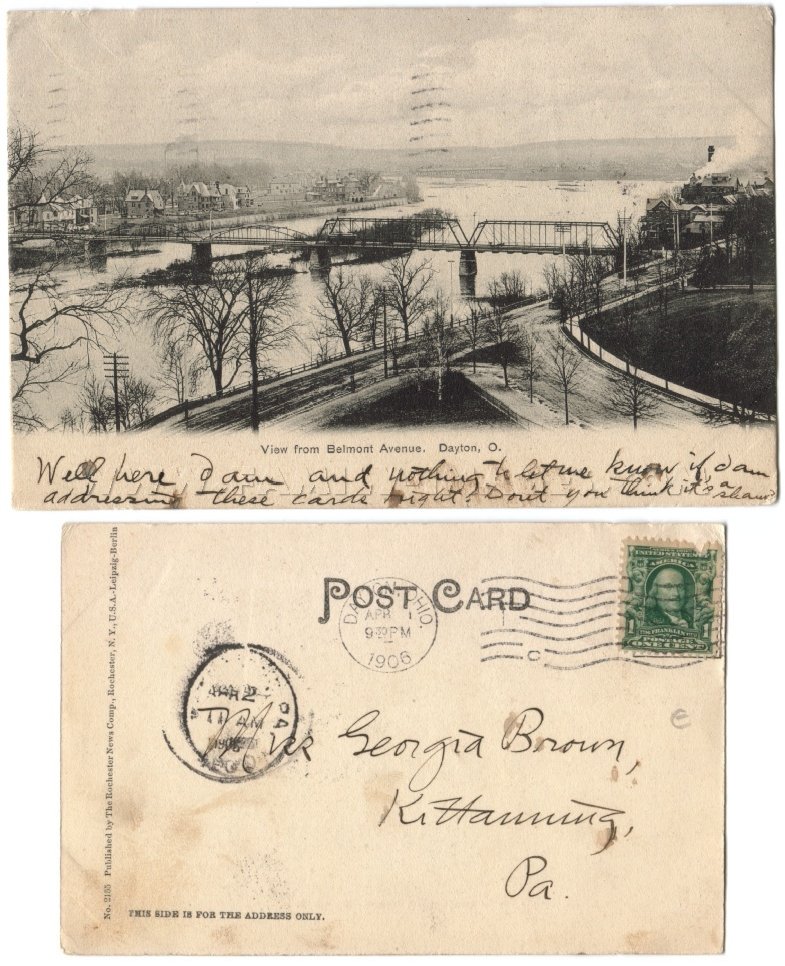 View from Belmont Avenue. Dayton, O.
Well here I am and nothing to let me know if I am
addressing these cards right? Don't you think it's a shame?
No. 2155 Published by The Rochester News Comp., Rochester, N. Y., U.S.A.-Leipzig-Berlin
POST CARD
DAYTON, OHIO.
APR 1
9 PM
1906
SERIES 1902
UNITED STATES OF
AMERICA
FRANKLIN
POSTAGE
1 ONE CENT 1
APR 2
11 AM
1906
PA
Miss Georgia Brown,
Kittanning,
Pa.
THIS SIDE IS FOR THE ADDRESS ONLY.